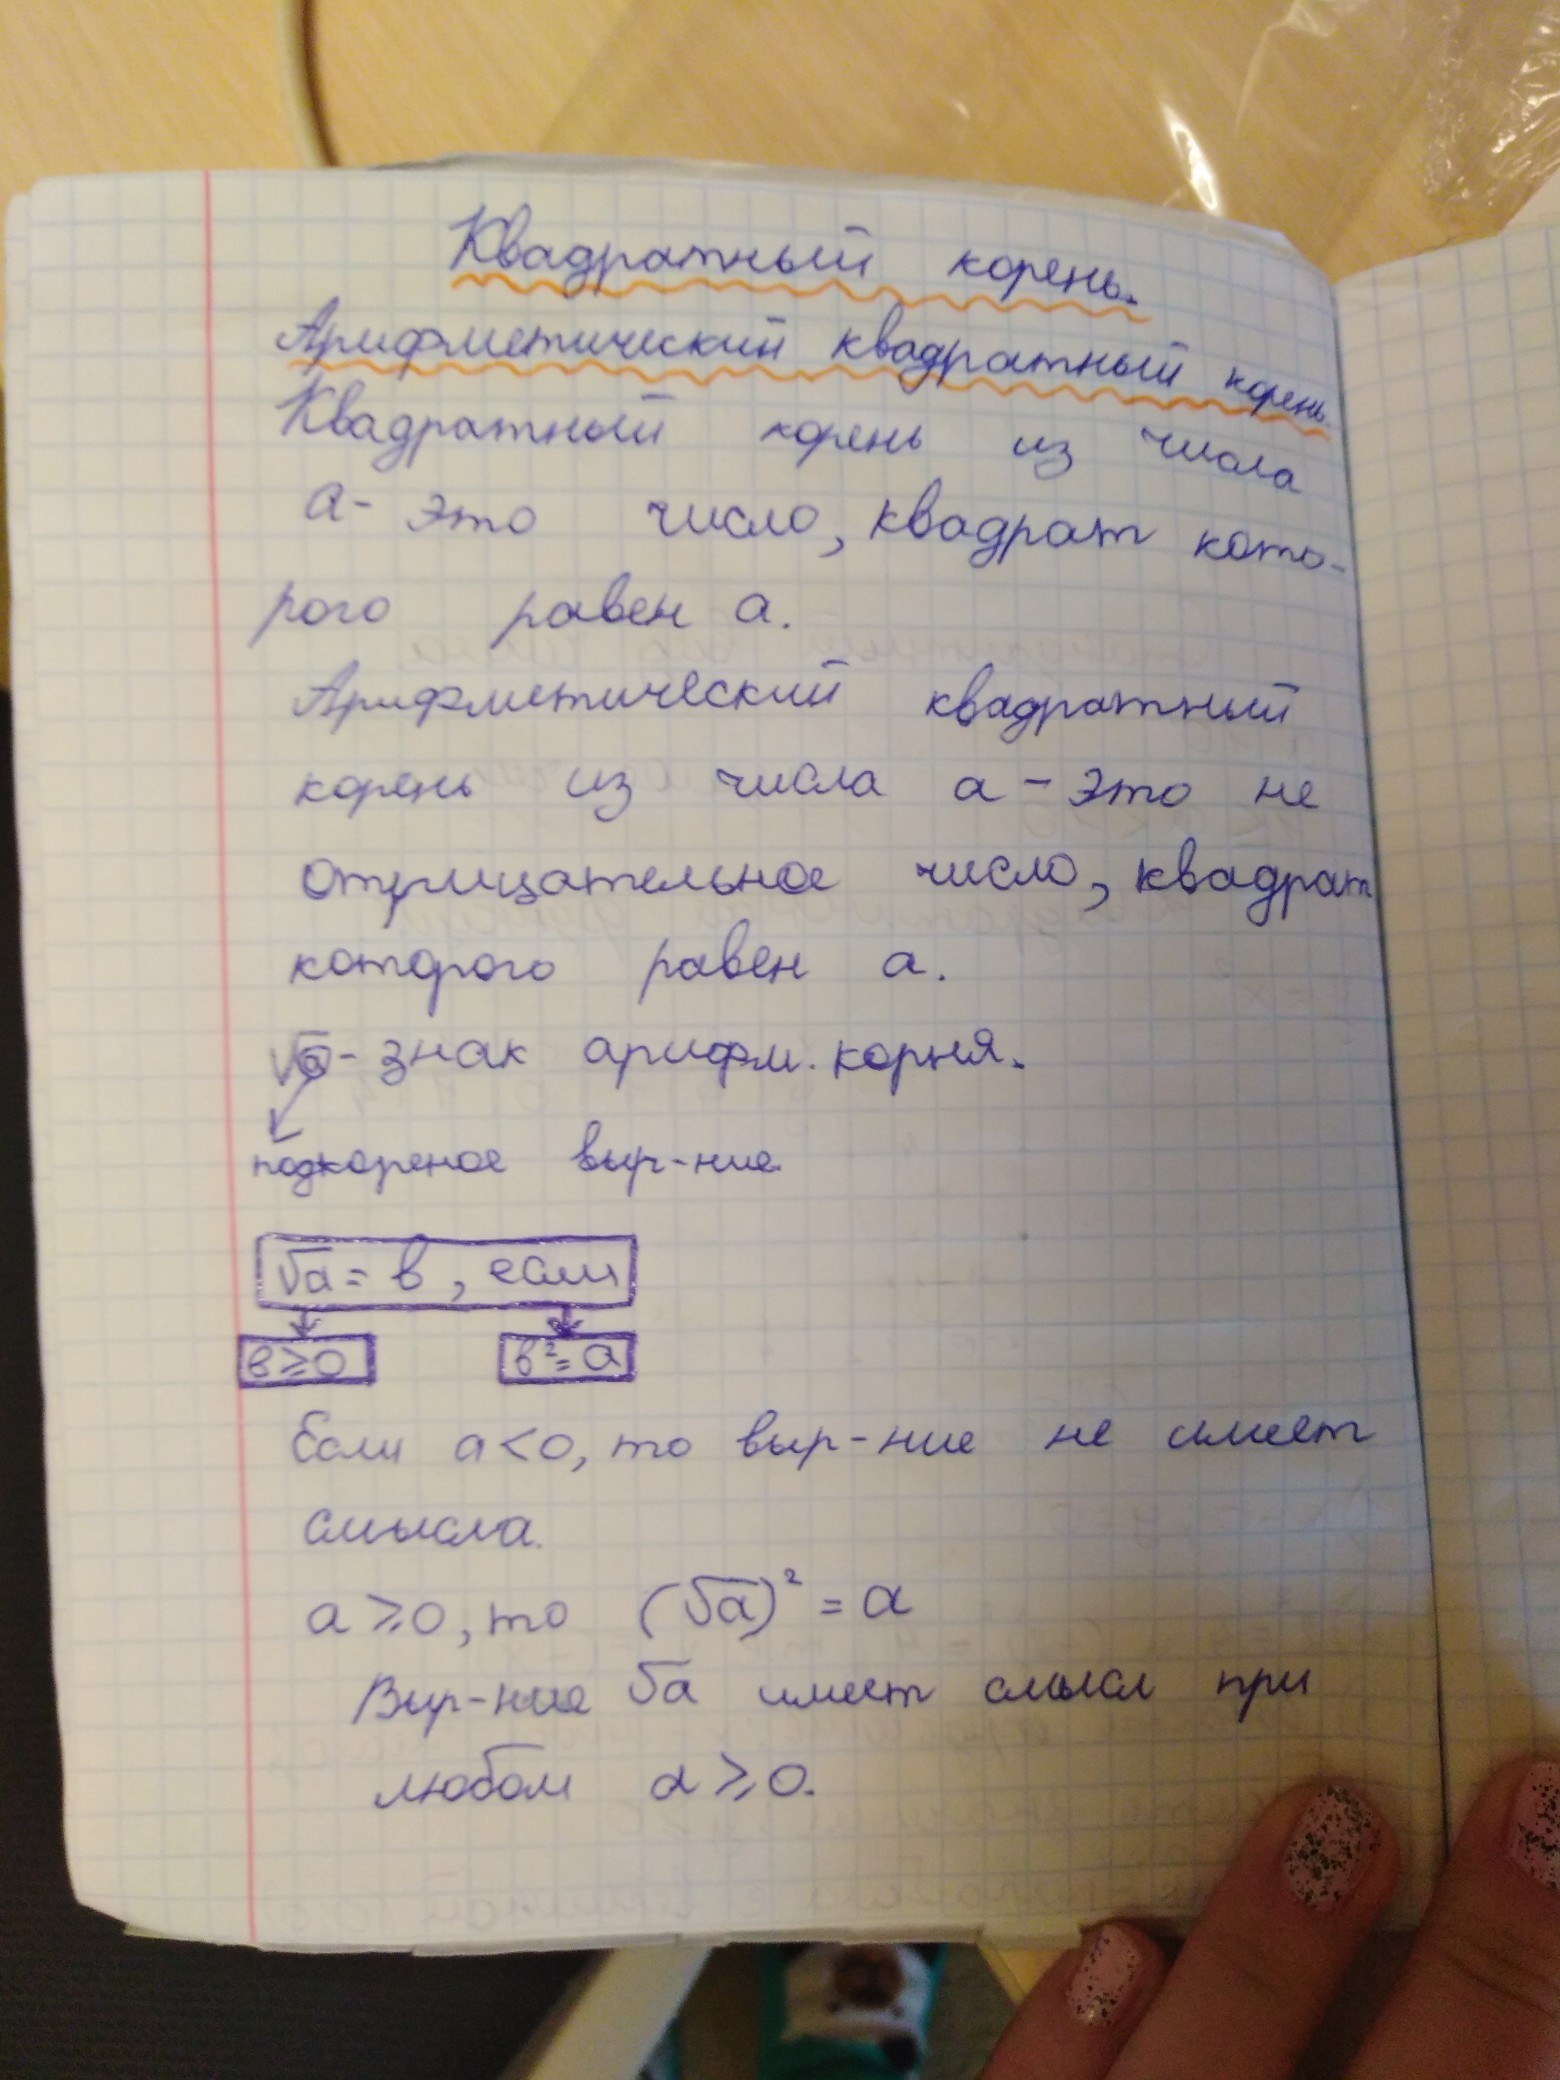 Квадратный корень.
Арифметический квадратный корень.
Квадратный корень из числа
а- это число, квадрат кото-
рого равен а.
Арифметический квадратный
корень из числа а - это не
отрицательное число, квадрат
которого равен а.
√а - знак арифм. корня.
подкореное выр-ние.
√а = в, если
в ≥ 0 в² = а
Если а < 0, то выр-ние не имеет
смысла.
а ≥ 0, то (√а)² = а
Выр-ние √а имеет смысл при
любом а ≥ 0.